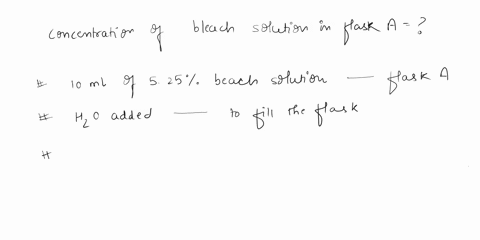 Concentration of bleach solution in flask A = ?
# 10 ml of 5.25% beach solution — flask A
# H₂O added — to fill the flask
#